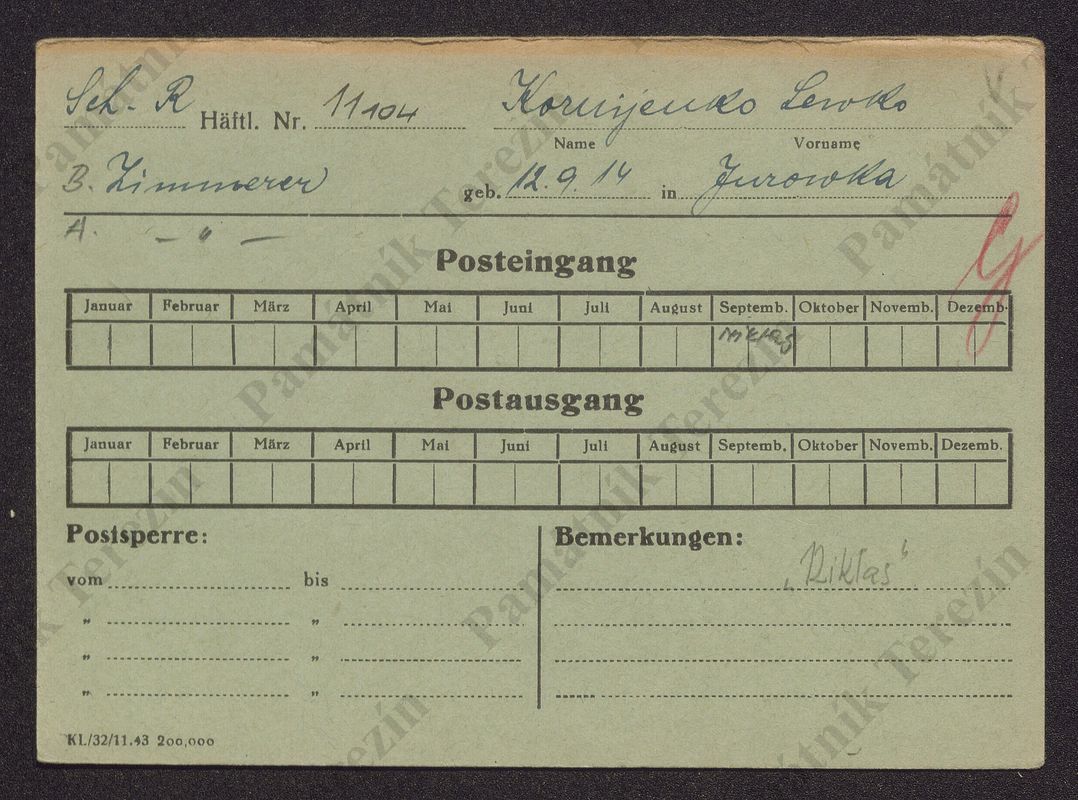 Sch-R Häftl. Nr. 11104 Kornijenko Lewko
Name Vorname
B. Zimmerer geb. 12.9.14 in Jurowka
A. — " —
Posteingang
Januar Februar März April Mai Juni Juli August Septemb. Oktober Novemb. Dezemb.
Niklas
Postausgang
Januar Februar März April Mai Juni Juli August Septemb. Oktober Novemb. Dezemb.
Postsperre: Bemerkungen:
vom bis „Niklas“
" "
" "
" "
KL/32/11.43 200,000
Památník Terezín